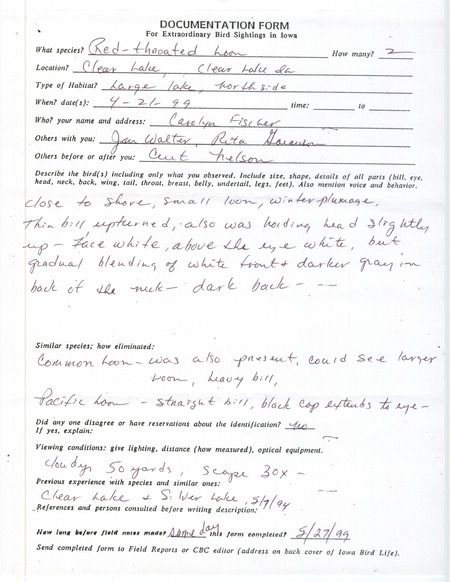 DOCUMENTATION FORM
For Extraordinary Bird Sightings in Iowa
What species? Red-throated Loon How many? 2
Location? Clear Lake, Clear Lake Ia
Type of Habitat? Large lake, north side
When? date(s): 4-21-99 time: to
Who? your name and address: Carolyn Fischer
Others with you: Jan Walter, Rita Goranson
Others before or after you: Curt Nelson
Describe the bird(s) including only what you observed. Include size, shape, details of all parts (bill, eye,
head, neck, back, wing, tail, throat, breast, belly, undertail, legs, feet). Also mention voice and behavior.
close to shore, small loon, winter plumage.
Thin bill, upturned, also was holding head slightly
up - Face white, above the eye white, but
gradual blending of white front & darker gray in
back of the neck - dark back - --
Similar species; how eliminated:
Common Loon - was also present, could see larger
loon, heavy bill,
Pacific Loon - straight bill, black cap extends to eye -
Did any one disagree or have reservations about the identification? no
If yes, explain:
Viewing conditions: give lighting, distance (how measured), optical equipment.
cloudy, 50 yards, scope 30x -
Previous experience with species and similar ones:
Clear Lake & Silver Lake, 5/7/94
References and persons consulted before writing description:
How long before field notes made? same day this form completed? 5/27/99
Send completed form to Field Reports or CBC editor (address on back cover of Iowa Bird Life).